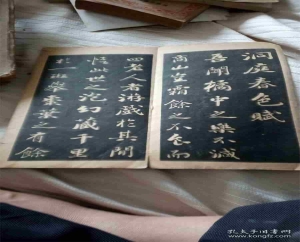 洞庭春色賦
吾聞橘中之樂不減
商山豈霜餘之不食而
四老人者游戲於其間
悟此世之泡幻藏千里
於一班舉棗葉之有餘
孔夫子旧书网